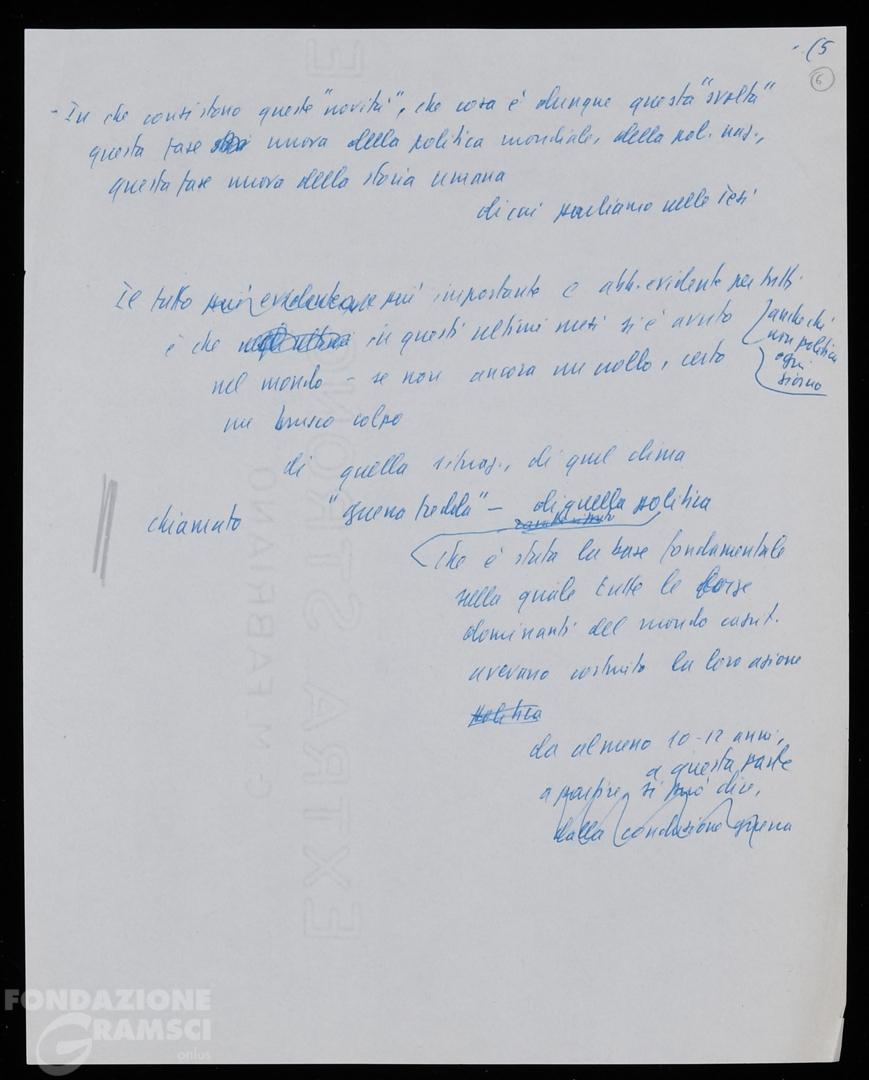 - (5
6
- In che consistono queste "novità", che cosa è dunque questa "svolta"
questa fase nuova della politica mondiale, della pol. naz.,
questa fase nuova della storia umana
di cui parliamo nelle Tesi
Il fatto più evidente più importante e abb. evidente per tutti
è che in questi ultimi mesi si è avuto
anche chi
non politica
ogni
giorno
nel mondo - se non ancora un crollo, certo
un brusco colpo
di quella situaz., di quel clima
chiamato "guerra fredda" - di quella politica
che è stata la base fondamentale
sulla quale tutte le forze
dominanti del mondo capit.
avevano costruito la loro azione
politica
da almeno 10-12 anni,
a questa parte
a partire, si può dire,
dalla conclusione guerra
G M FABRIANO
EXTRA STRONG
E
FONDAZIONE
GRAMSCI
onlus